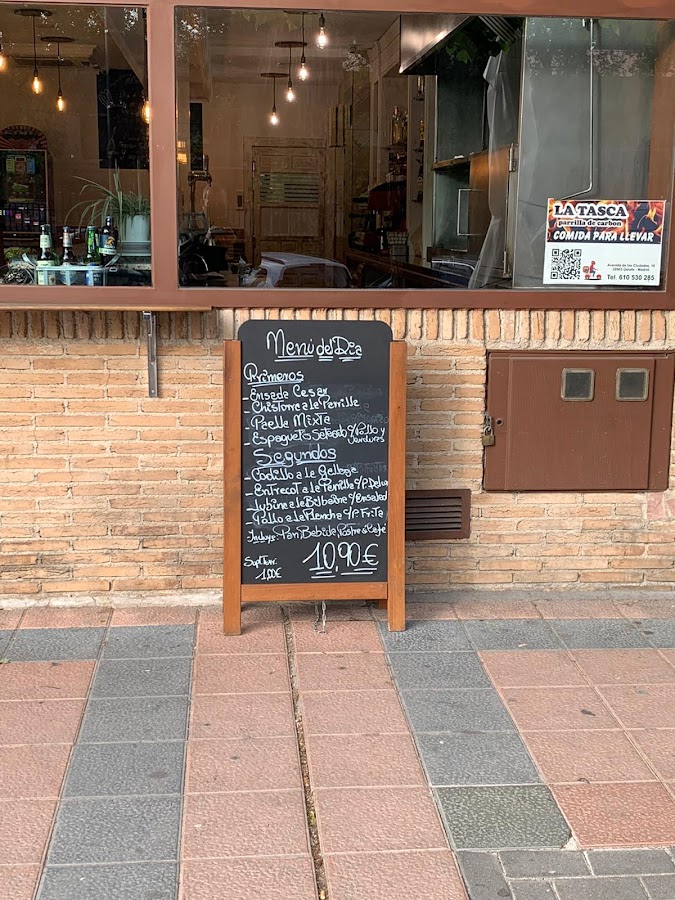 LA TASCA
parrilla de carbon
COMIDA PARA LLEVAR
Avenida de las Ciudades,
28903 Getafe - Madrid
Tel. 610 530 285
Menú del Dia
Primeros
- Ensada Cesar
- Chistorra a la Parrilla
- Paella Mixta
- Espaguetis Salteado c/Pollo y
Verduras
Segundos
- Codillo a la Gallega
- Entrecot a la Parrilla c/P.
- Lubina a la Bilbaina c/Ensalad
- Pollo a la Plancha c/P. Frita
- Incluye: Pan Bebida, Postre o Café
Supl Terr.
1,00€
10,90€